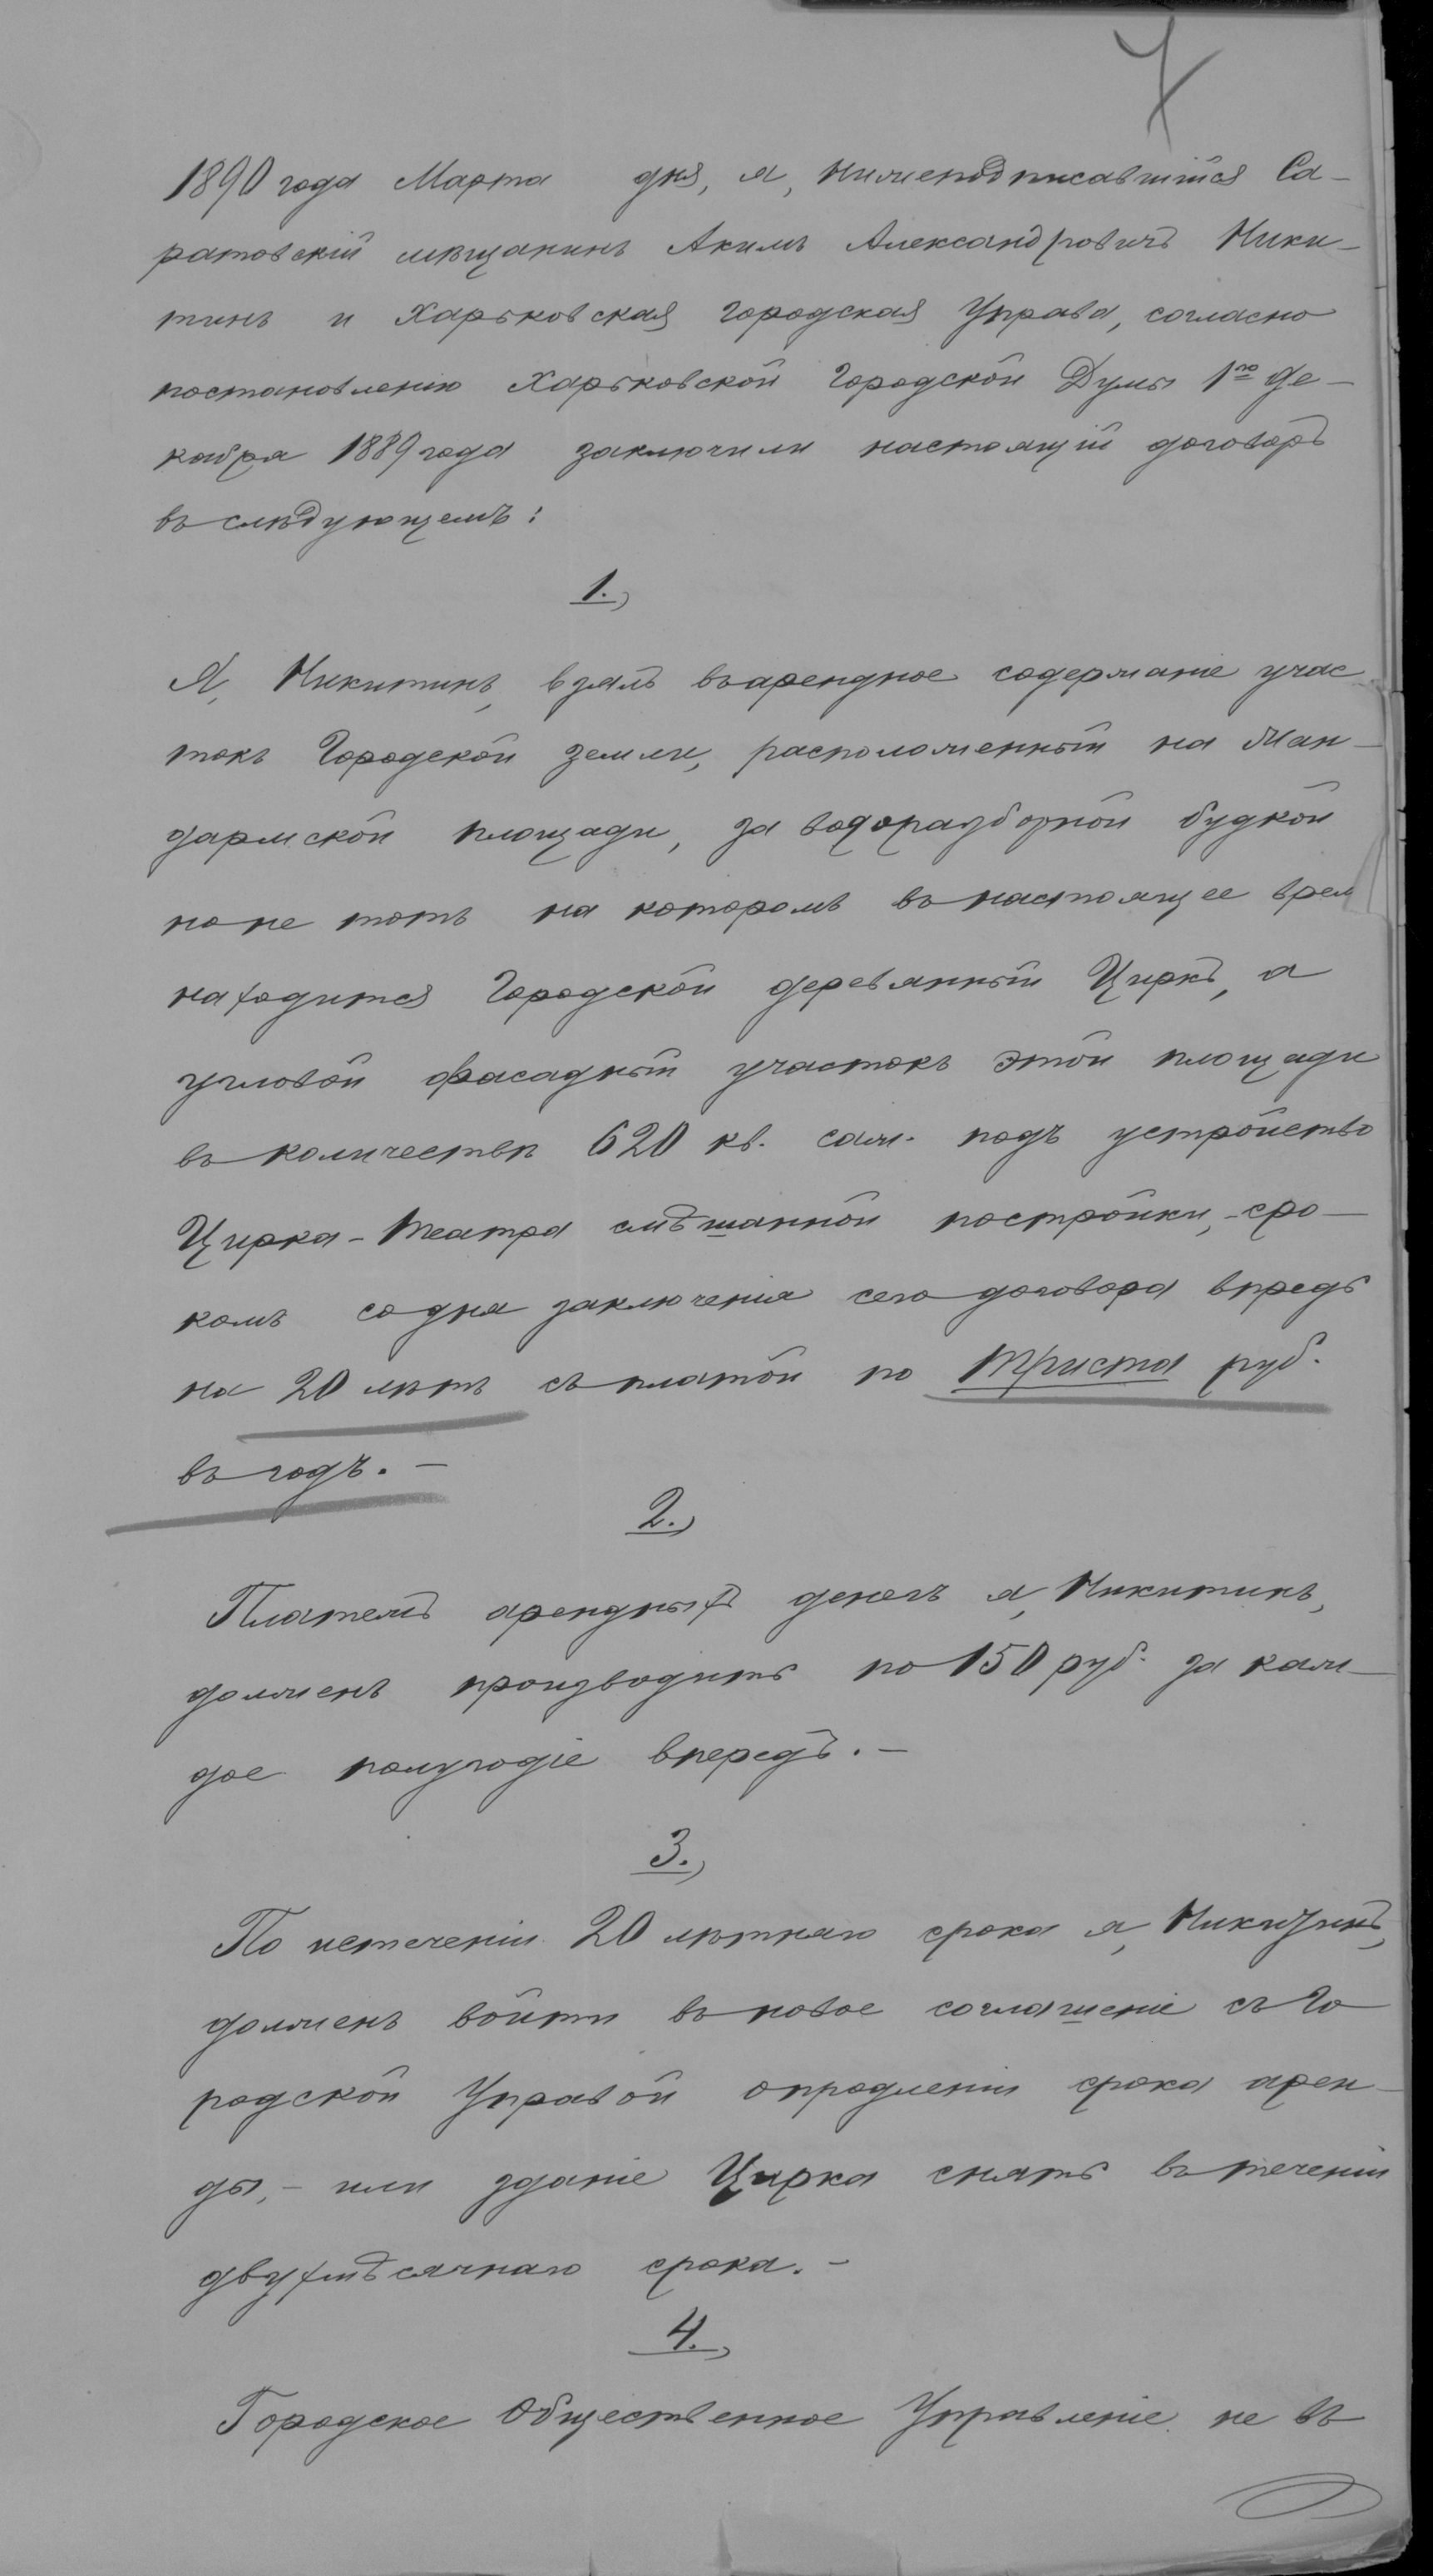 7
1890 года Марта дня, я, нижеподписавшійся Са-
ратовскій мѣщанинъ Акимъ Александровичъ Ники-
тинъ и Харьковская Городская Управа, согласно
постановленію Харьковской Городской Думы 1го де-
кабря 1889 года заключили настоящій договоръ
въ слѣдующемъ:
1.,
Я, Никитинъ, взялъ въ арендное содержаніе учас
токъ Городской земли, расположенный на Жан-
дармской площади, за водоразборной будкой
но не тотъ на которомъ въ настоящее врем
находится Городской деревянный Циркъ, а
угловой фасадный участокъ этой площади
въ количествѣ 620 кв. саж. подъ устройство
Цирка-Театра смѣшанной постройки, - сро-
комъ со дня заключенія сего договора впредь
на 20 лѣтъ съ платой по Триста руб.
въ годъ. -
2.,
Платежъ арендныхъ денегъ я, Никитинъ,
долженъ производить по 150 руб. за каж-
дое полугодіе впередъ. -
3.,
По истеченіи 20 лѣтняго срока я, Никитинъ,
долженъ войти въ новое соглашеніе съ Го
родской Управой опродленіи срока арен-
ды, - или зданіе Цирка снять въ теченіи
двухмѣсячнаго срока. -
4.,
Городское Общественное Управленіе не въ